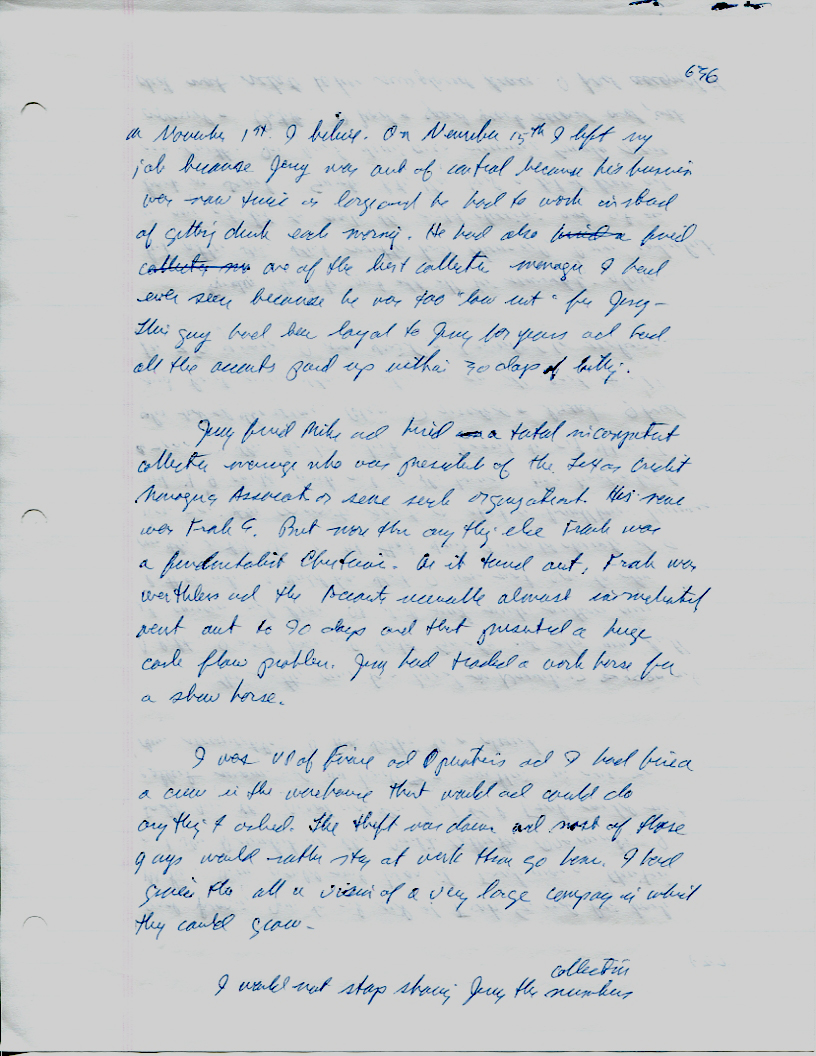 636
on November 1st I believe. On November 15th I left my
job because Jerry was out of control because his business
was now twice as large and he had to work instead
of getting drunk each morning. He had also hired a fired
collector one of the best collection manager I had
ever seen because he was too "low cut" for Jerry -
This guy had been loyal to Jerry for years and had
all the accounts paid up within 30 days of billing.
Jerry fired Mike and hired a total incompetent
collection manager who was president of the Texas Credit
Managers Association or some such organization. His name
was Frank G. But more than anything else Frank was
a fundamentalist Christian. As it turned out, Frank was
worthless and the Accounts receivable almost immediately
went out to 90 days and that presented a huge
cash flow problem. Jerry had traded a work horse for
a show horse.
I was VP of Finance and Operations and I had hired
a crew in the warehouse that would and could do
anything I asked. The theft was down and most of those
guys would rather stay at work than go home. I had
given them all a vision of a very large company in which
they could grow.
collection
I would not stop showing Jerry the numbers